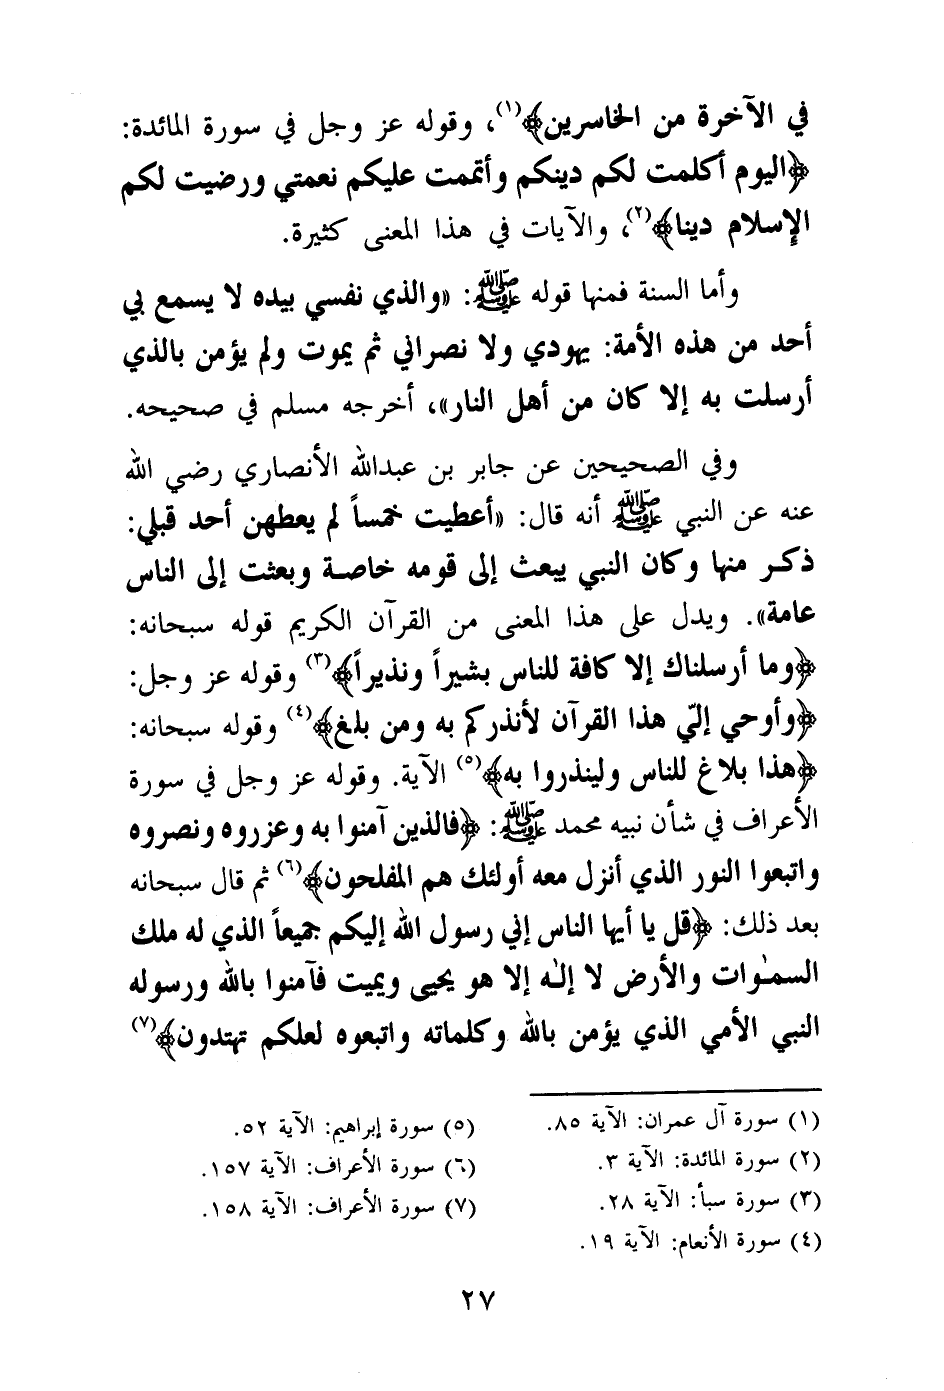 في الآخرة من الخاسرين﴾(١)، وقوله عز وجل في سورة المائدة:
﴿اليوم أكلمت لكم دينكم وأتممت عليكم نعمتي ورضيت لكم
الإسلام دينا﴾(٢)، والآيات في هذا المعنى كثيرة.
وأما السنة فمنها قوله ﷺ: «والذي نفسي بيده لا يسمع بي
أحد من هذه الأمة: يهودي ولا نصراني ثم يموت ولم يؤمن بالذي
أرسلت به إلا كان من أهل النار»، أخرجه مسلم في صحيحه.
وفي الصحيحين عن جابر بن عبدالله الأنصاري رضي الله
عنه عن النبي ﷺ أنه قال: «أعطيت خمساً لم يعطهن أحد قبلي:
ذكر منها وكان النبي يبعث إلى قومه خاصة وبعثت إلى الناس
عامة». ويدل على هذا المعنى من القرآن الكريم قوله سبحانه:
﴿وما أرسلناك إلا كافة للناس بشيراً ونذيراً﴾(٣) وقوله عز وجل:
﴿وأوحي إليّ هذا القرآن لأنذركم به ومن بلغ﴾(٤) وقوله سبحانه:
﴿هذا بلاغ للناس ولينذروا به﴾(٥) الآية. وقوله عز وجل في سورة
الأعراف في شأن نبيه محمد ﷺ: ﴿فالذين آمنوا به وعزروه ونصروه
واتبعوا النور الذي أنزل معه أولئك هم المفلحون﴾(٦) ثم قال سبحانه
بعد ذلك: ﴿قل يا أيها الناس إني رسول الله إليكم جميعاً الذي له ملك
السمٰوات والأرض لا إلٰه إلا هو يحيى ويميت فآمنوا بالله ورسوله
النبي الأمي الذي يؤمن بالله وكلماته واتبعوه لعلكم تهتدون﴾(٧)
(١) سورة آل عمران: الآية ٨٥.
(٢) سورة المائدة: الآية ٣.
(٣) سورة سبأ: الآية ٢٨.
(٤) سورة الأنعام: الآية ١٩.
(٥) سورة إبراهيم: الآية ٥٢.
(٦) سورة الأعراف: الآية ١٥٧.
(٧) سورة الأعراف: الآية ١٥٨.
٢٧